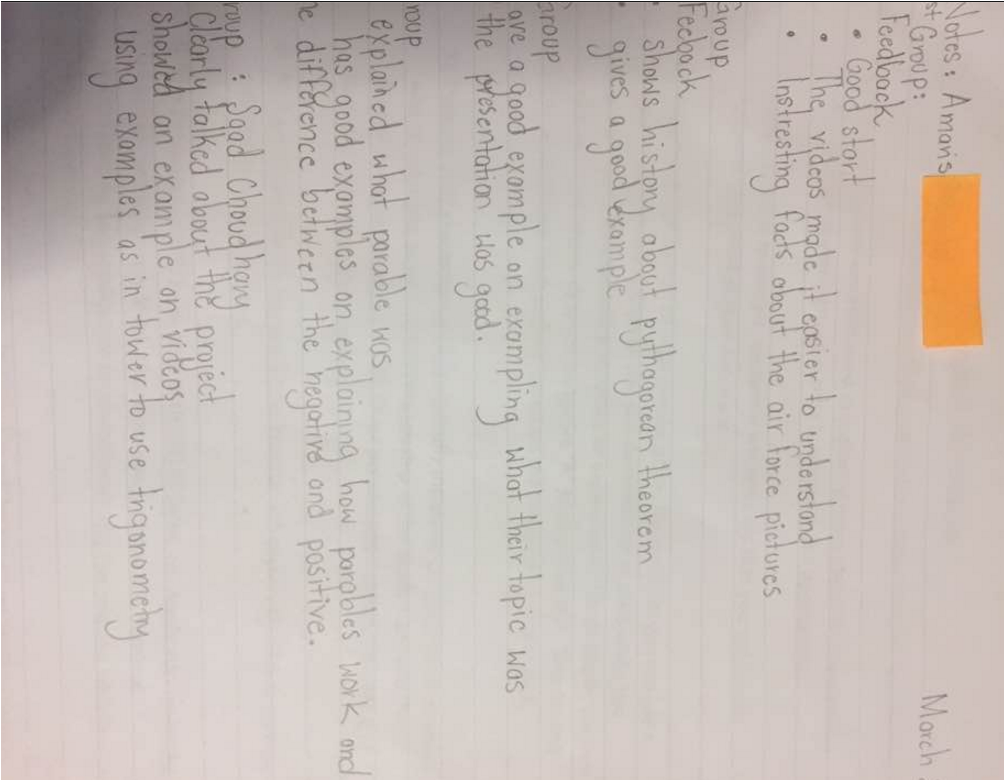 Notes: Amaris March
st Group:
Feedback
• Good start
• The videos made it easier to understand
• Instresting facts about the air force pictures
Group
Feeback
• Shows history about pythagorean theorem
• gives a good example
Group
ave a good example on exampling what their topic was
the presentation was good.
roup
explained what parable was
has good examples on explaining how parables work and
he difference between the negative and positive.
roup: Saad Choudhary
Clearly talked about the project
showed an example on videos
using examples as in tower to use trigonometry